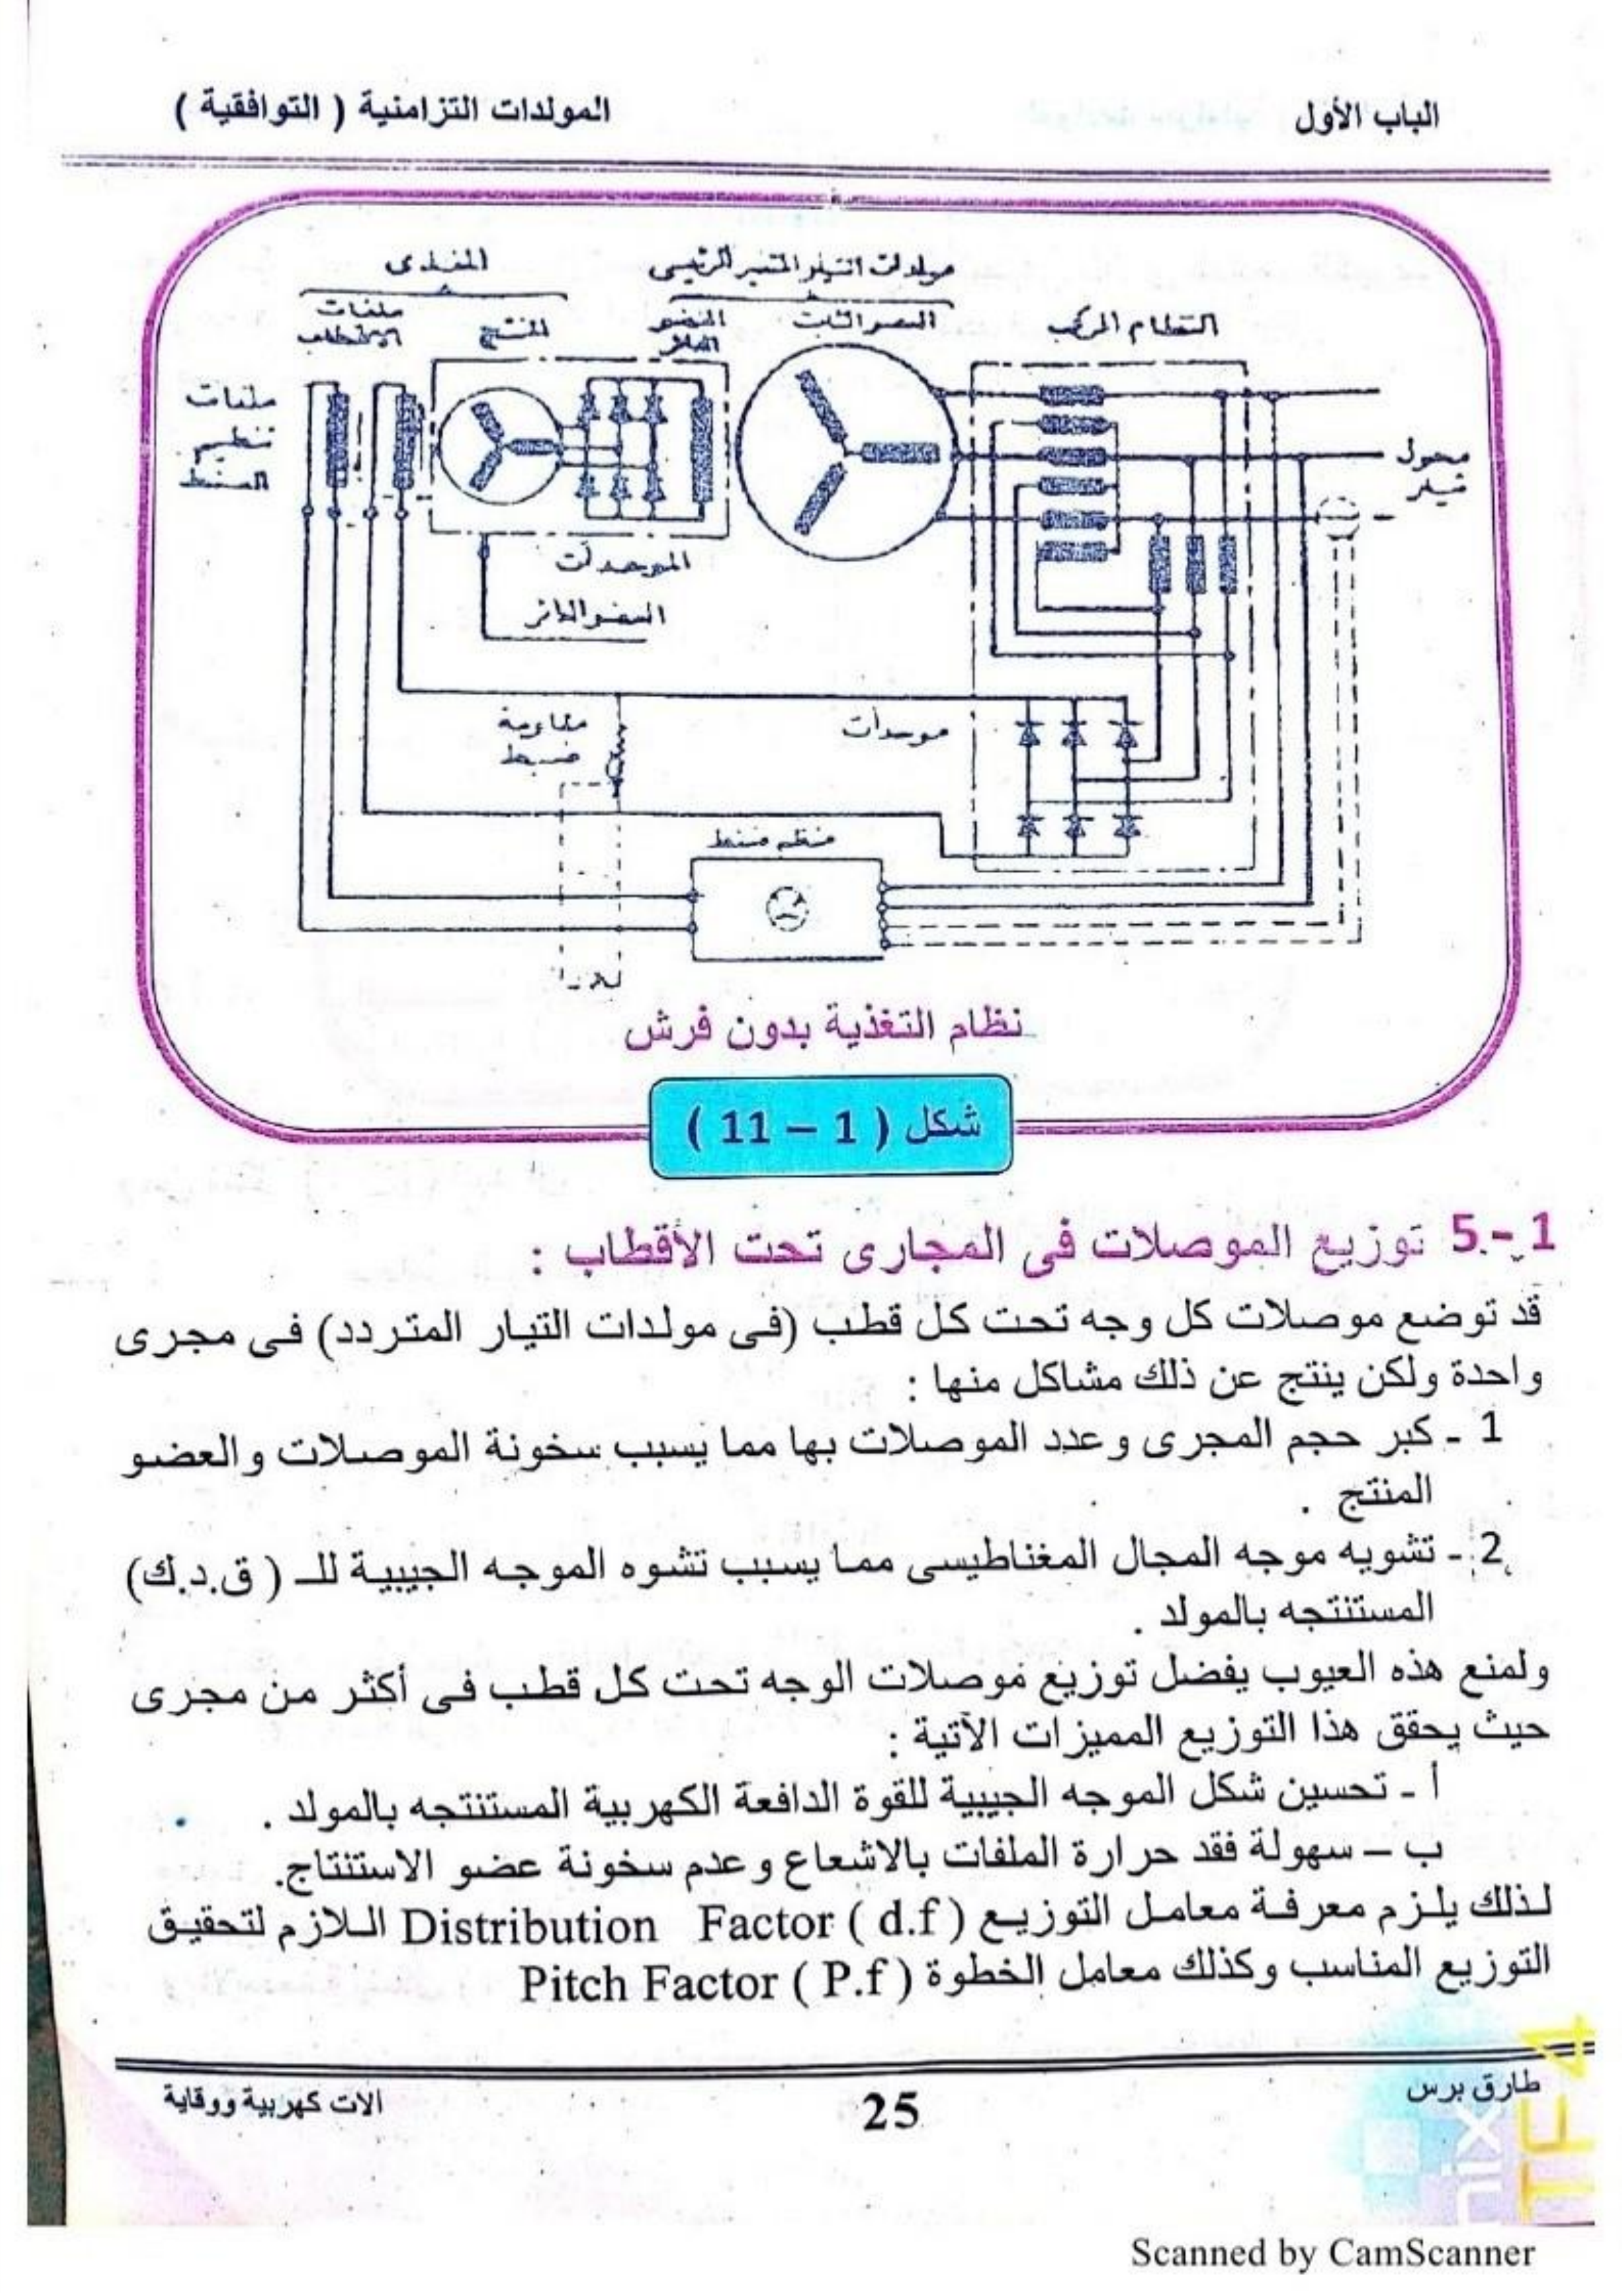 الباب الأول
المولدات التزامنية ( التوافقية )
المغذى
مولدات التيار المتغير الرئيسى
ملفات الأقطاب
المنتج
العضو الثابت
النظام المركب
ملفات
تنظيم
الضغط
محول
تيار
الموحدات
العضو الدائر
مقاومة
ضبط
موحدات
منظم ضغط
نظام التغذية بدون فرش
شكل ( 1 – 11 )
1 -5 توزيع الموصلات فى المجارى تحت الأقطاب :
قد توضع موصلات كل وجه تحت كل قطب (فى مولدات التيار المتردد) فى مجرى
واحدة ولكن ينتج عن ذلك مشاكل منها :
1 - كبر حجم المجرى وعدد الموصلات بها مما يسبب سخونة الموصلات والعضو
المنتج .
2 - تشويه موجه المجال المغناطيسى مما يسبب تشوه الموجه الجيبية للـ ( ق.د.ك)
المستنتجه بالمولد .
ولمنع هذه العيوب يفضل توزيع موصلات الوجه تحت كل قطب فى أكثر من مجرى
حيث يحقق هذا التوزيع المميزات الآتية :
أ - تحسين شكل الموجه الجيبية للقوة الدافعة الكهربية المستنتجه بالمولد .
ب – سهولة فقد حرارة الملفات بالاشعاع وعدم سخونة عضو الاستنتاج.
لذلك يلزم معرفة معامل التوزيع Distribution Factor ( d.f ) اللازم لتحقيق
التوزيع المناسب وكذلك معامل الخطوة Pitch Factor ( P.f )
طارق برس
25
الات كهربية ووقاية
nix
TF4
Scanned by CamScanner